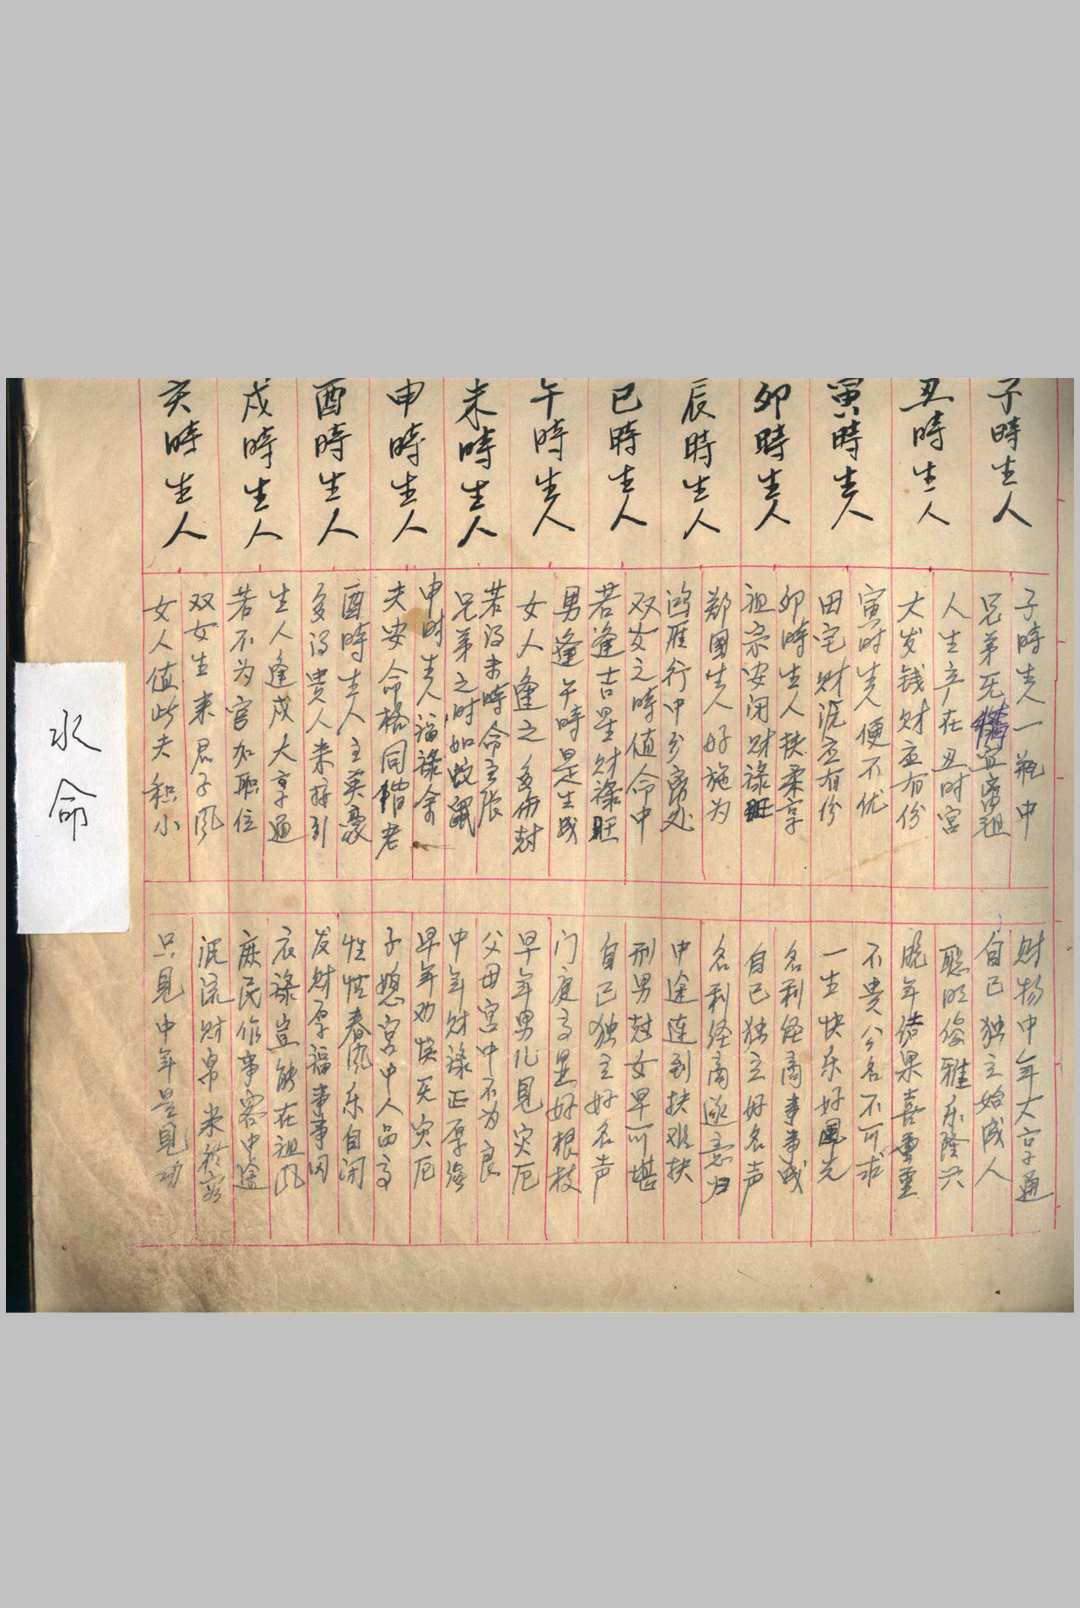 子時生人
丑時生人
寅時生人
卯時生人
辰時生人
巳時生人
午時生人
未時生人
申時生人
酉時生人
戌時生人
亥時生人
子時生人一瓶中
兄弟死宜离祖
人生产在丑时宫
大发钱财丕有份
寅时生人便不优
田宅财沉丕有份
卯時生人扶柔亨
祖宗安闭财禄旺
鄰國生人好施为
鸿雁行中分离处
双女之時值命中
若逢吉星财禄旺
男逢午時是生成
女人逢之多伤尅
若得未時命主张
兄弟之时如蛟
申时生人福禄余
夫安命格同偕老
酉時生人主英豪
多得贵人来扶引
生人逢戍大亨通
若不为官加职位
双女生来君子风
女人值此夫积小
财物中年大亨通
自己独立始成人
聪明俊雅乐隆兴
晚年结果喜重重
不贵公名不可求
一生快乐好風光
名利经商事事成
自己独立好名声
名利经商遂意归
中途连到扶难扶
刑男尅女早可堪
自己独立好名声
门庭高显好根枝
早年男儿見灾厄
父母宫中不为良
中年财禄正厚
早年劝快无灾厄
子媳宫中人品高
性情春風乐自闲
发财厚福事事因
衣禄岂能在祖風
庶民作事容中途
沉流财帛来
只見中年显見功
水命